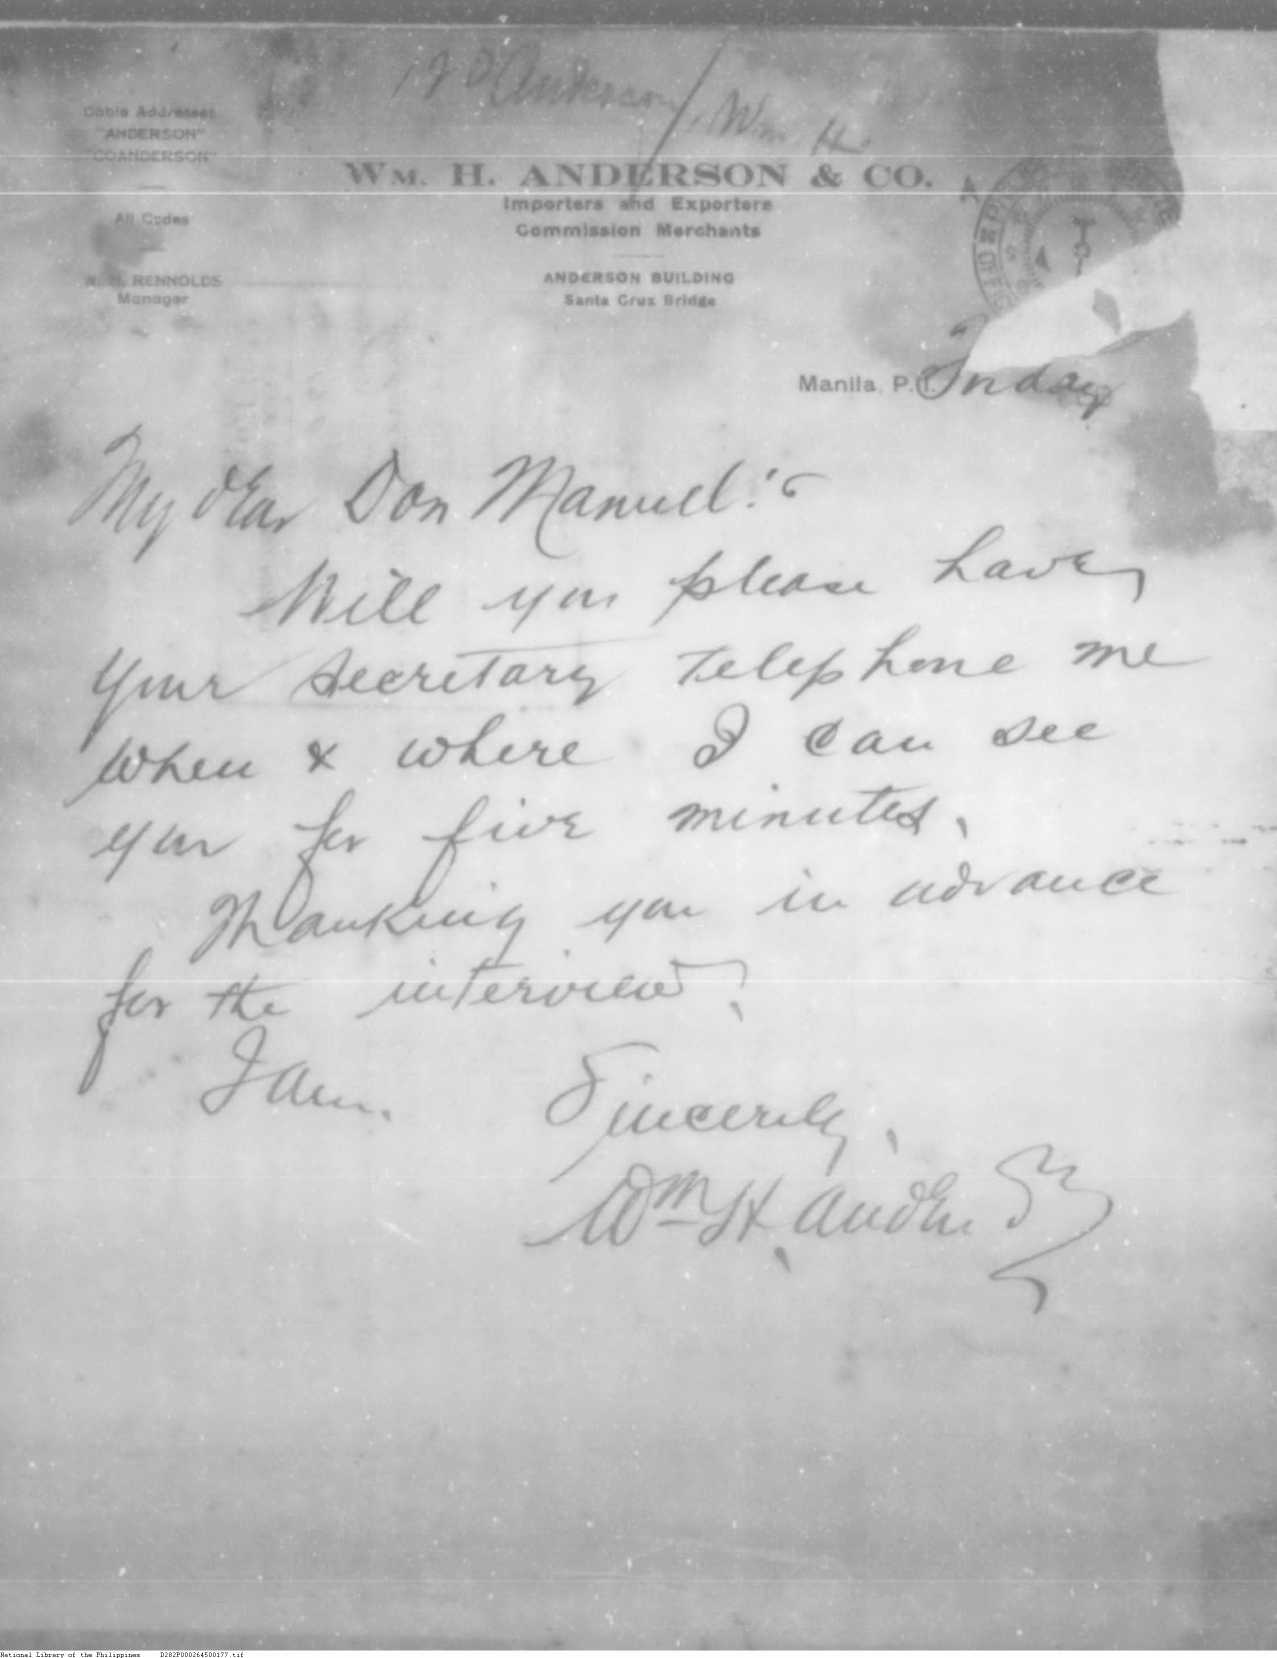 Anderson, Wm. H.
Cable Addresses
"ANDERSON"
"COANDERSON"
All Codes
RENNOLDS
Manager
WM. H. ANDERSON & CO.
Importers and Exporters
Commission Merchants
ANDERSON BUILDING
Santa Cruz Bridge
Manila, P. I.
My dear Don Manuel:-
Will you please have
your secretary telephone me
when & where I can see
you for five minutes.
Thanking you in advance
for the interview,
I am.
Sincerely,
Wm H. Anderson
National Library of the Philippines D282P000264500177.tif